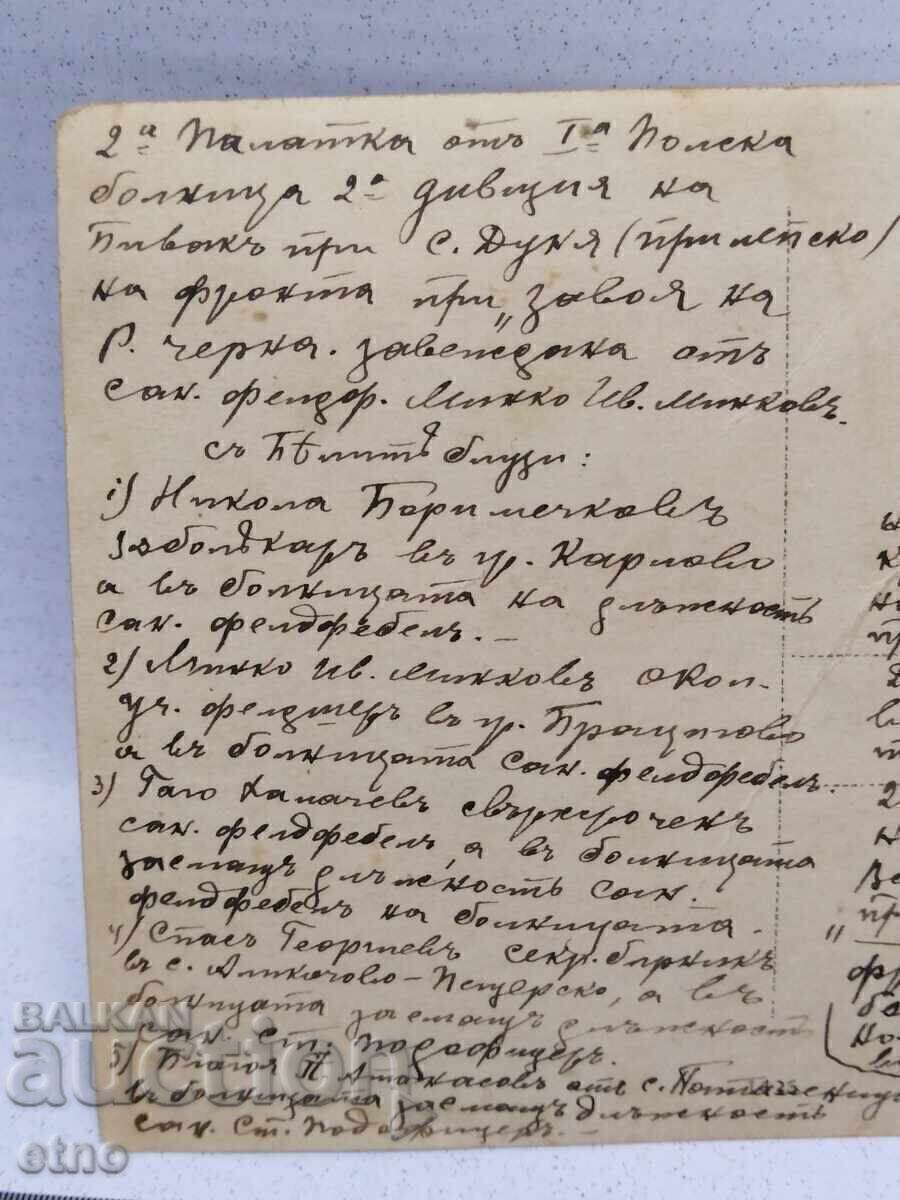 2а Палатка отъ Iа Полска
болница 2а дивизия на
Бивакъ при с. Дуня (прилепско)
на фронта при „завоя на
Р. Черна. завеждана отъ
сан. фелдф. Минко Ив. Минковъ.
съ Бѣлитѣ блузи:
1) Никола Боримечковъ
зѫболѣкарь въ гр. Карлово
а въ болницата на длъжность
сан. фелдфебелъ. —
2) Минко Ив. Минковъ окол.
уч. фелдшеръ въ гр. Брацигово
а въ болницата сан. фелдфебелъ.
3) Ганю Калачевъ свръхсроченъ
сан. фелдфебелъ, а въ болницата
заемащъ длъжность сан.
фелдфебелъ на болницата.
4) Спасъ Георгиевъ секр. бирникъ
въ с. Аликочово-Пещерско, а въ
болницата заемащъ длъжность
сан. ст. подофицеръ.
5) Благоя П. Атанасовъ отъ с.
въ болницата заемащъ длъжность
сан. ст. подофицеръ. —
к
на
пр
2
в
2
н
Ве
„пр
фр
бо
но
в
BALKAN
auction
etno